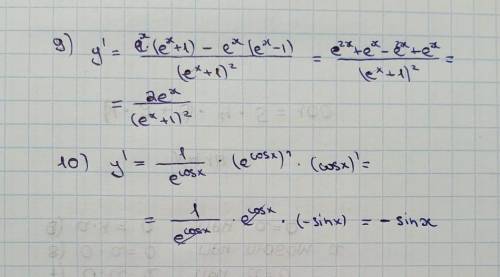 9) y' = (eˣ·(eˣ+1) − eˣ(eˣ−1))/(eˣ+1)² = (e²ˣ+eˣ−e²ˣ+eˣ)/(eˣ+1)² =
= 2eˣ/(eˣ+1)²
10) y' = 1/e^cosx · (e^cosx)' · (cosx)' =
= 1/e^cosx · e^cosx · (−sinx) = −sinx